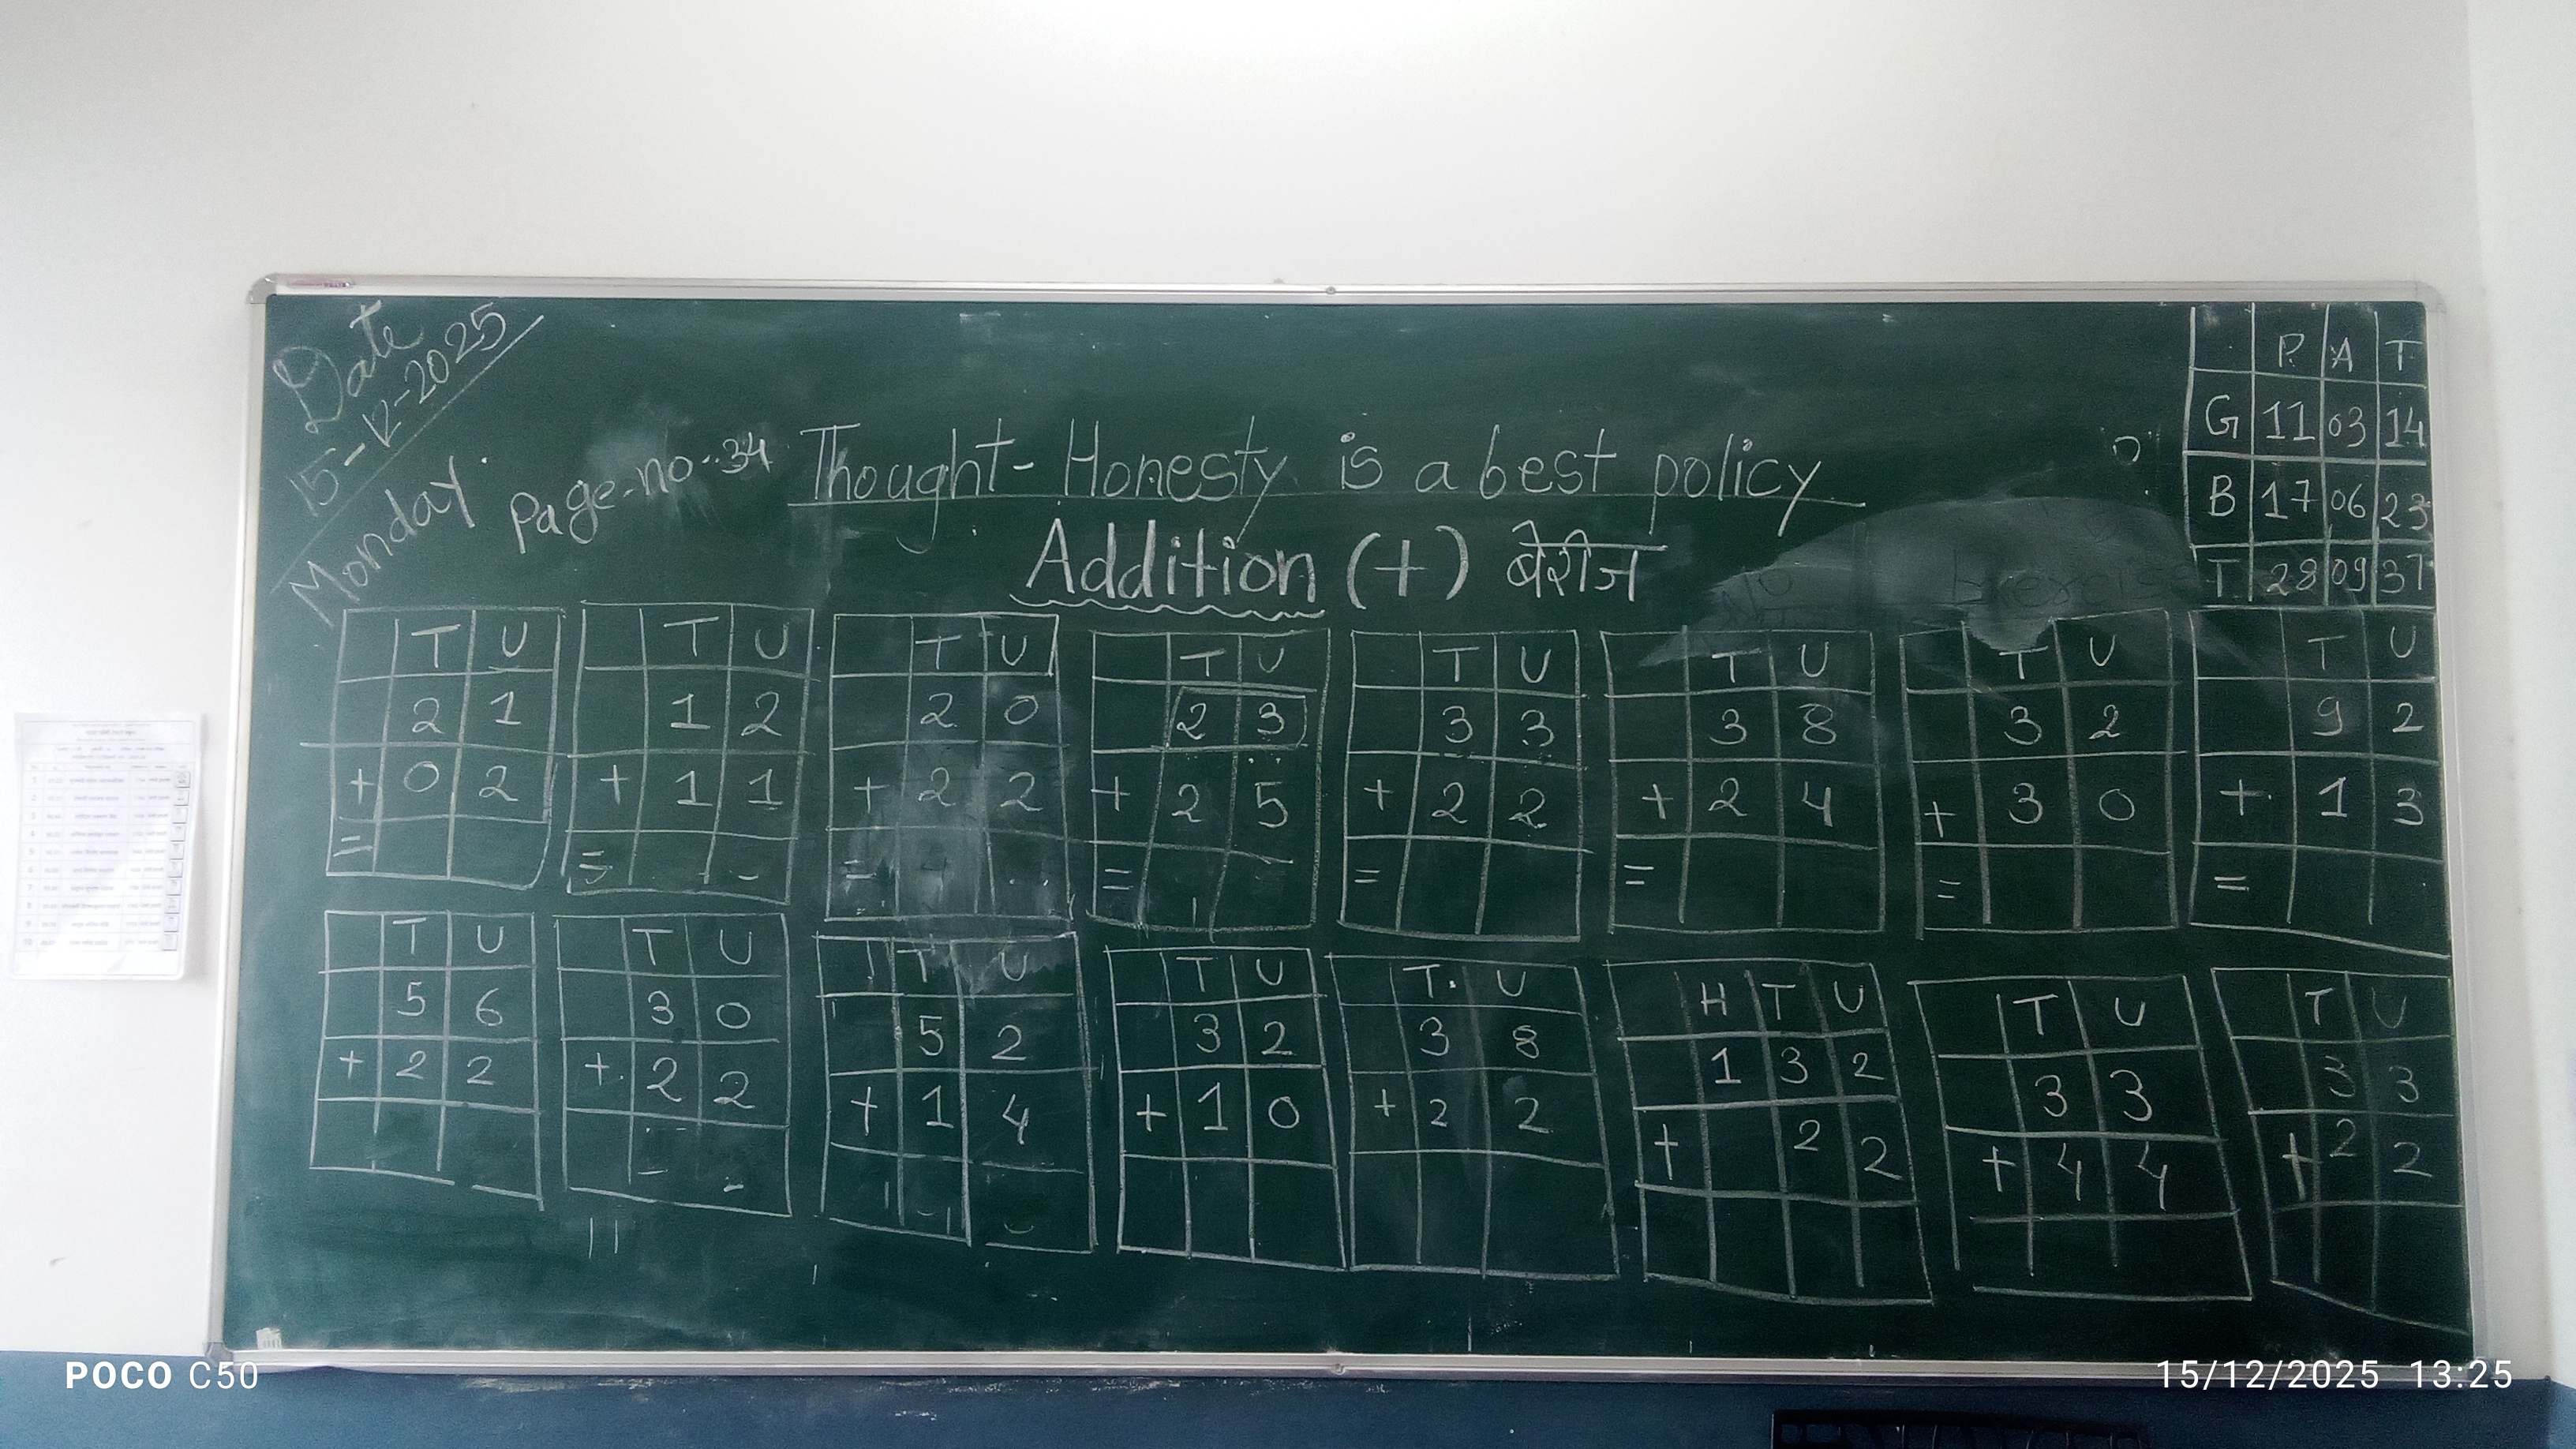 Date
15-12-2025
Monday
P A T
G 11 03 14
B 17 06 23
T 28 09 37
page-no-34
Thought- Honesty is a best policy
Addition (+) बेरीज
T U
2 1
+ 0 2
=
T U
1 2
+ 1 1
=
T U
2 0
+ 2 2
=
T U
2 3
+ 2 5
=
T U
3 3
+ 2 2
=
T U
3 8
+ 2 4
=
T U
3 2
+ 3 0
=
T U
9 2
+ 1 3
=
T U
5 6
+ 2 2
T U
3 0
+ 2 2
T U
5 2
+ 1 4
T U
3 2
+ 1 0
T U
3 8
+ 2 2
H T U
1 3 2
+ 2 2
T U
3 3
+ 4 4
T U
3 3
+ 2 2
POCO C50
15/12/2025 13:25